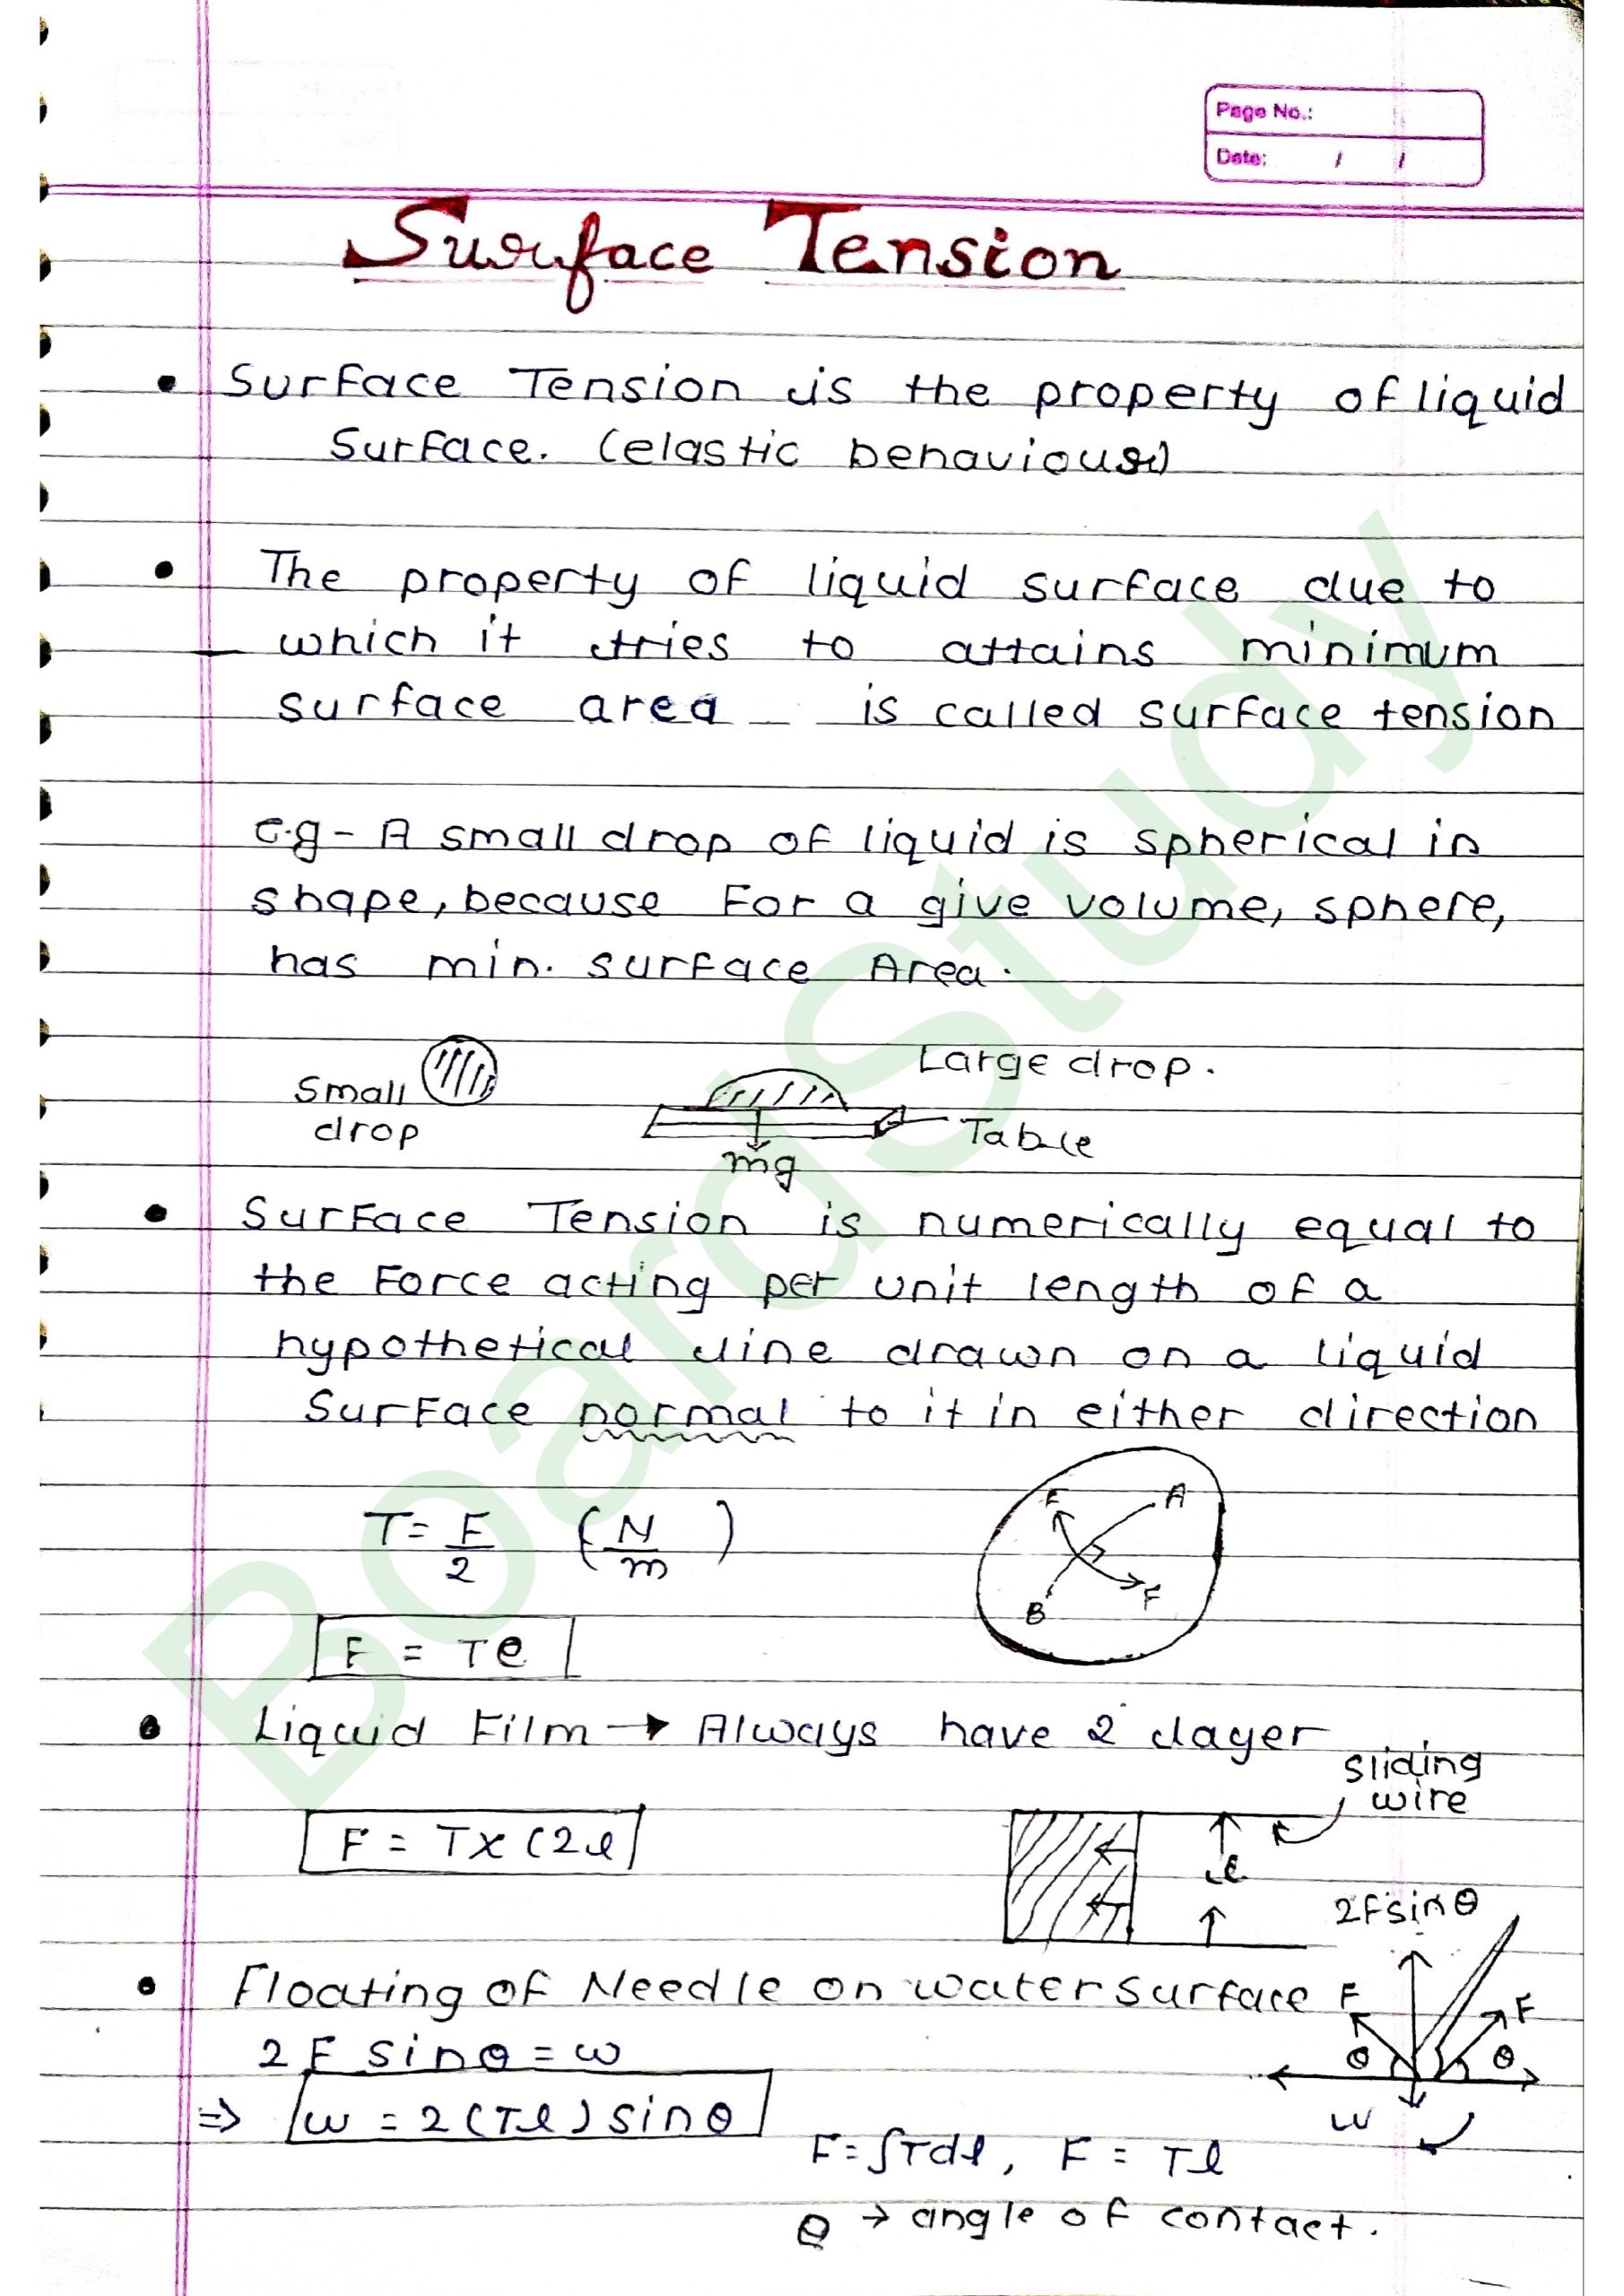 Page No.:
Date: / /
Surface Tension
• Surface Tension is the property of liquid
Surface. (elastic behaviour)
• The property of liquid surface due to
which it tries to attains minimum
surface area is called surface tension
e.g - A small drop of liquid is spherical in
shape, because For a give volume, sphere,
has min. surface Area.
Large drop.
Small
drop
Table
mg
• Surface Tension is numerically equal to
the Force acting per unit length of a
hypothetical line drawn on a liquid
Surface normal to it in either direction
T = F/2 (N/m)
F A
B F
F = Tl
• Liquid Film → Always have 2 layer
sliding
wire
F = T x (2l
l
2Fsinθ
• Floating of Needle on water surface
F F
2 F sinθ = w
θ θ
⇒ w = 2 (Tl) sinθ
w
F = ∫Tdl, F = Tl
θ → angle of contact.
BoardStudy